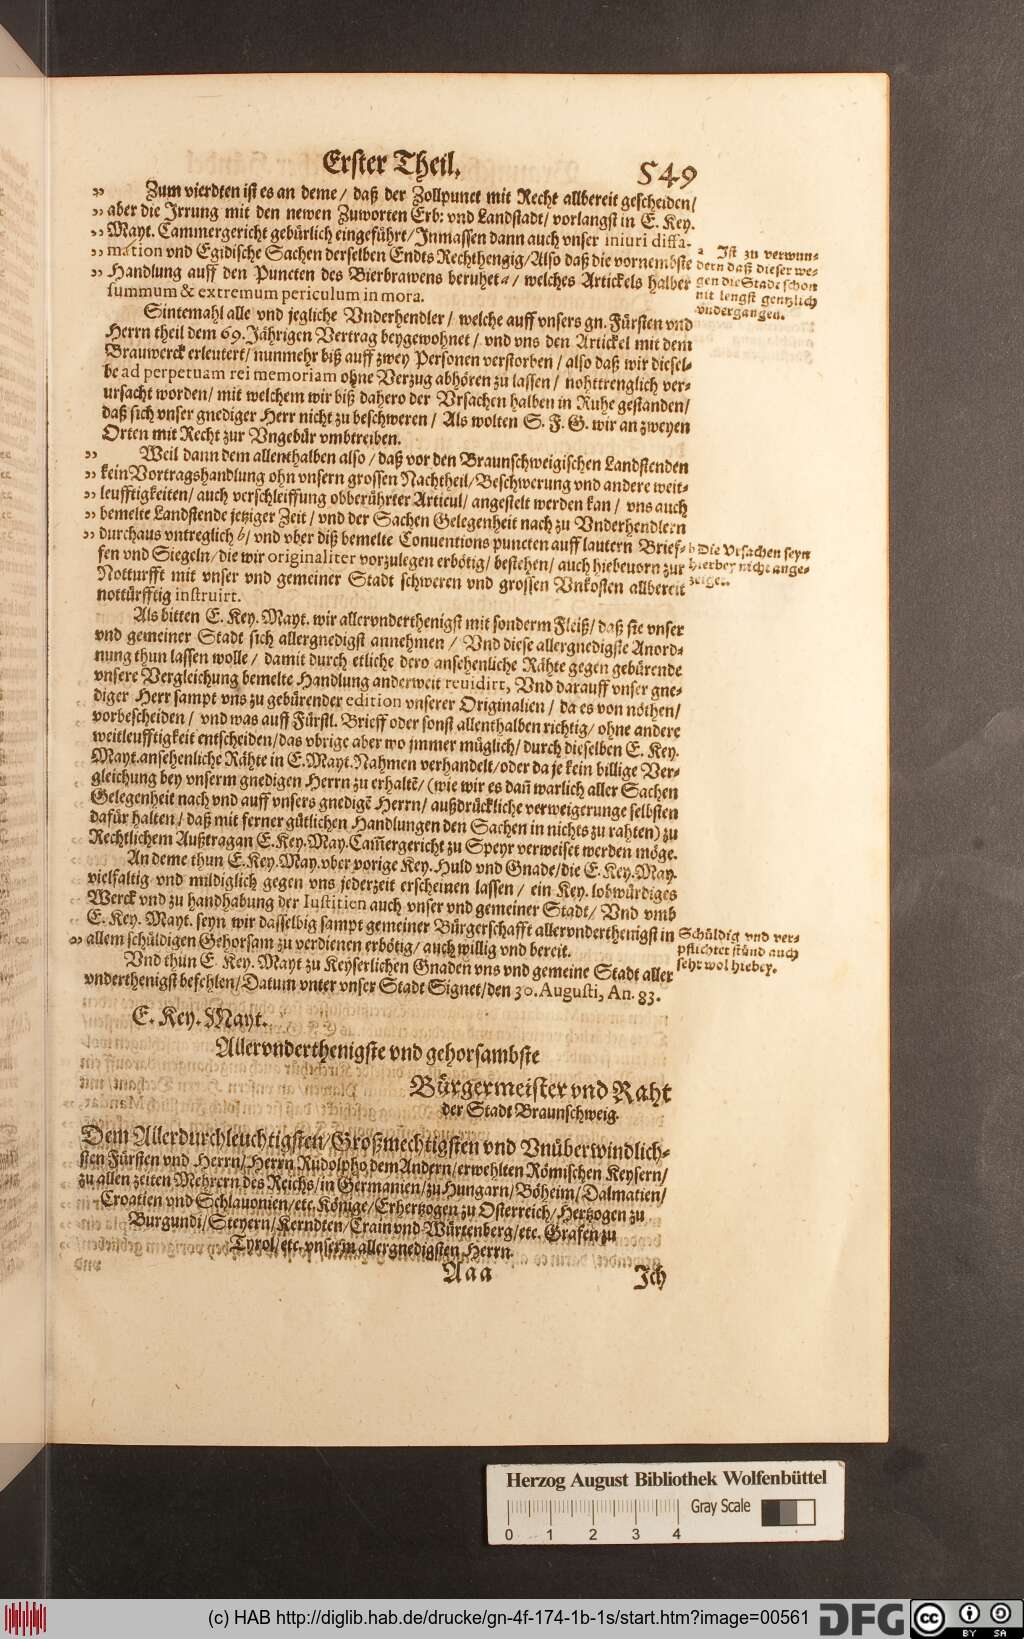 Erster Theil.
549
„ Zum vierdten ist es an deme / daß der Zollpunct mit Recht allbereit gescheiden/
„ aber die Irrung mit den newen Zuworten Erb: vnd Landstadt/ vorlangst in E. Key.
„ Mayt. Cammergericht gebürlich eingeführt/ Inmassen dann auch vnser iniuri diffa-
„ mation vnd Egidische Sachen derselben Endts Rechthengig/ Also daß die vornembste
„ Handlung auff den Puncten des Bierbrawens beruhet a/ welches Artickels halber
summum & extremum periculum in mora.
a Ist zu verwun-
dern daß dieser we-
gen die Stadt schon
nit lengst gentzlich
vndergangen.
Sintemahl alle vnd jegliche Vnderhendler/ welche auff vnsers gn. Fürsten vnd
Herrn theil dem 69. Jährigen Vertrag beygewohnet/ vnd vns den Artickel mit dem
Brauwerck erleutert/ nunmehr biß auff zwey Personen verstorben/ also daß wir diesel-
be ad perpetuam rei memoriam ohne Verzug abhören zu lassen/ nohttrenglich ver-
ursacht worden/ mit welchem wir biß dahero der Vrsachen halben in Ruhe gestanden/
daß sich vnser gnediger Herr nicht zu beschweren/ Als wolten S. F. G. wir an zweyen
Orten mit Recht zur Vngebür vmbtreiben.
„ Weil dann dem allenthalben also/ daß vor den Braunschweigischen Landstenden
„ kein Vortragshandlung ohn vnsern grossen Nachtheil/ Beschwerung vnd andere weit-
„ leufftigkeiten/ auch verschleiffung obberührter Articul/ angestelt werden kan/ vns auch
„ bemelte Landstende jetziger Zeit/ vnd der Sachen Gelegenheit nach zu Vnderhendlern
„ durchaus vntreglich b/ vnd vber diß bemelte Conuentions puncten auff lautern Brief-
fen vnd Siegeln/ die wir originaliter vorzulegen erbötig/ bestehen/ auch hiebeuorn zur
Notturfft mit vnser vnd gemeiner Stadt schweren vnd grossen Vnkosten allbereit
nottürfftig instruirt.
b Die Vrsachen seyn
hierbey nicht ange-
zeiget.
Als bitten E. Key. Mayt. wir allervnderthenigst mit sonderm Fleiß/ daß sie vnser
vnd gemeiner Stadt sich allergnedigst annehmen/ Vnd diese allergnedigste Anord-
nung thun lassen wolle/ damit durch etliche dero ansehenliche Rähte gegen gebürende
vnsere Vergleichung bemelte Handlung anderweit reuidirt, Vnd darauff vnser gne-
diger Herr sampt vns zu gebürender edition vnserer Originalien/ da es von nöthen/
vorbescheiden/ vnd was auff Fürstl. Brieff oder sonst allenthalben richtig/ ohne andere
weitleufftigkeit entscheiden/ das vbrige aber wo jmmer müglich/ durch dieselben E. Key.
Mayt. ansehenliche Rähte in E. Mayt. Nahmen verhandelt/ oder da je kein billige Ver-
gleichung bey vnserm gnedigen Herrn zu erhaltē/ (wie wir es dañ warlich aller Sachen
Gelegenheit nach vnd auff vnsers gnedigē Herrn/ außdrückliche verweigerunge selbsten
dafür halten/ daß mit ferner gütlichen Handlungen den Sachen in nichts zu rahten) zu
Rechtlichem Außtragan E. Key. May. Cam̃ergericht zu Speyr verweiset werden möge.
An deme thun E. Key. May. vber vorige Key. Huld vnd Gnade/ die E. Key. May.
vielfaltig vnd mildiglich gegen vns jederzeit erscheinen lassen/ ein Key. lobwürdiges
Werck vnd zu handhabung der Iustitien auch vnser vnd gemeiner Stadt/ Vnd vmb
E. Key. Mayt. seyn wir dasselbig sampt gemeiner Bürgerschafft allervnderthenigst in
„ allem schüldigen Gehorsam zu verdienen erbötig/ auch willig vnd bereit.
Schüldig vnd ver-
pflichtet stünd auch
sehr wol hiebey.
Vnd thun E. Key. Mayt zu Keyserlichen Gnaden vns vnd gemeine Stadt aller
vnderthenigst befehlen/ Datum vnter vnser Stadt Signet/ den 30. Augusti, An. 83.
E. Key. Mayt.
Allervnderthenigste vnd gehorsambste
Bürgermeister vnd Raht
der Stadt Braunschweig.
Dem Allerdurchleuchtigsten/ Großmechtigsten vnd Vnüberwindlich-
sten Fürsten vnd Herrn/ Herrn Rudolpho dem Andern/ erwehlten Römischen Keysern/
zu allen zeiten Mehrern des Reichs/ in Germanien/ zu Hungarn/ Böheim/ Dalmatien/
Croatien vnd Schlauonien/ etc. Könige/ Ertzhertzogen zu Osterreich/ Hertzogen zu
Burgundi/ Steyern/ Kerndten/ Crain vnd Würtenberg/ etc. Grafen zu
Tyrol/ etc. vnserm allergnedigsten Herrn.
Aaa
Ich
Herzog August Bibliothek Wolfenbüttel
Gray Scale
0 1 2 3 4
(c) HAB http://diglib.hab.de/drucke/gn-4f-174-1b-1s/start.htm?image=00561
DFG
cc BY SA